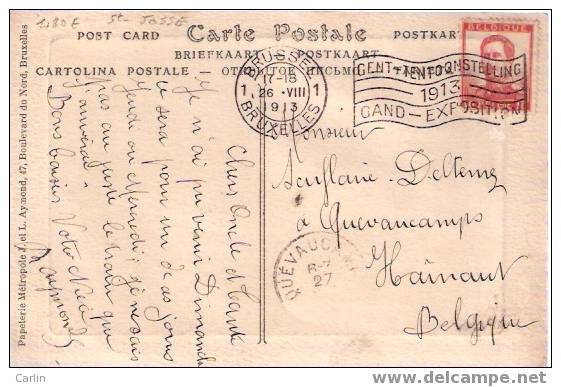 1.80 E St-Josse
Carte Postale
POST CARD
POSTKARTE
BRIEFKAART POSTKAART
CARTOLINA POSTALE
BRUSSEL
17-18
1 26-VIII 1
1913
BRUXELLES
GENT-TENTOONSTELLING
1913
GAND-EXPOSITION
BELGIQUE
Papeterie Métropole J. et L. Aymond, 47, Boulevard du Nord, Bruxelles
Chers Oncle et Tante
Je n'ai pu venir Dimanche
ce sera pour un de ces jours
Jeudi ou Mercredi; je ne sais
pas au juste le train que
j'aurai
Bons baisers Votre
Raymond
Monsieur
Deltenre
à Quevaucamps
Hainaut
Belgique
QUÉVAUC
27
Carlin
delcampe.net